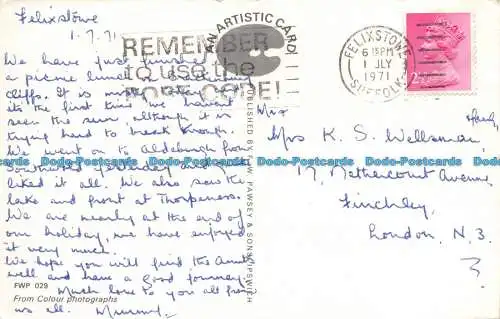 Felixstowe
1.7.71
We have just finished
a picnic lunch
cliffs. It is
it's the first time we haven't
seen the sun, although it is
trying hard to break through.
We went on to Aldeburgh from
Southwold yesterday and
liked it all. We also saw the
lake and front at Thorpeness.
We are nearly at the end of
our holiday, we have enjoyed
it very much.
We hope you will find the Aunts
well and have a good journey.
Much love to you all from
us all. Mummy.
FWP 029
From Colour photographs
AN ARTISTIC CARD
PUBLISHED BY F. W. PAWSEY & SONS, IPSWICH
REMEMBER
to use the
POST CODE!
FELIXSTOWE
6 15PM
1 JLY
1971
SUFFOLK
Mrs K. S. Wellsman,
17, Nethercourt Avenue,
Finchley,
London. N.3.
Dodo-Postcards
Dodo-Postcards
Dodo-Postcards
Dodo-Postcards
Dodo-Postcards
Dodo-Postcards